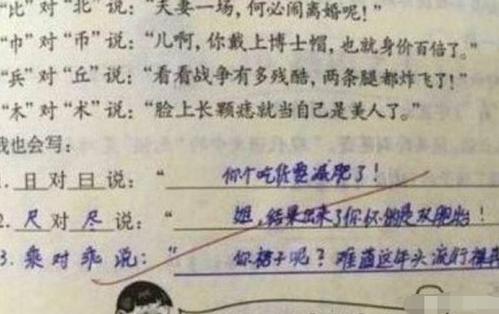 "比"对"北"说："夫妻一场，何必闹离婚呢！"
"巾"对"币"说："儿啊，你戴上博士帽，也就身价百倍了。"
"兵"对"丘"说："看看战争有多残酷，两条腿都炸飞了！"
"木"对"术"说："脸上长颗痣就当自己是美人了。"
我也会写：
1. 日对曰说："你个吃货要减肥了！
2. 尺对尽说："姐，结果出来了你怀的是双胞胎！
3. 乘对乖说："你裤子呢？难道这年头流行裸